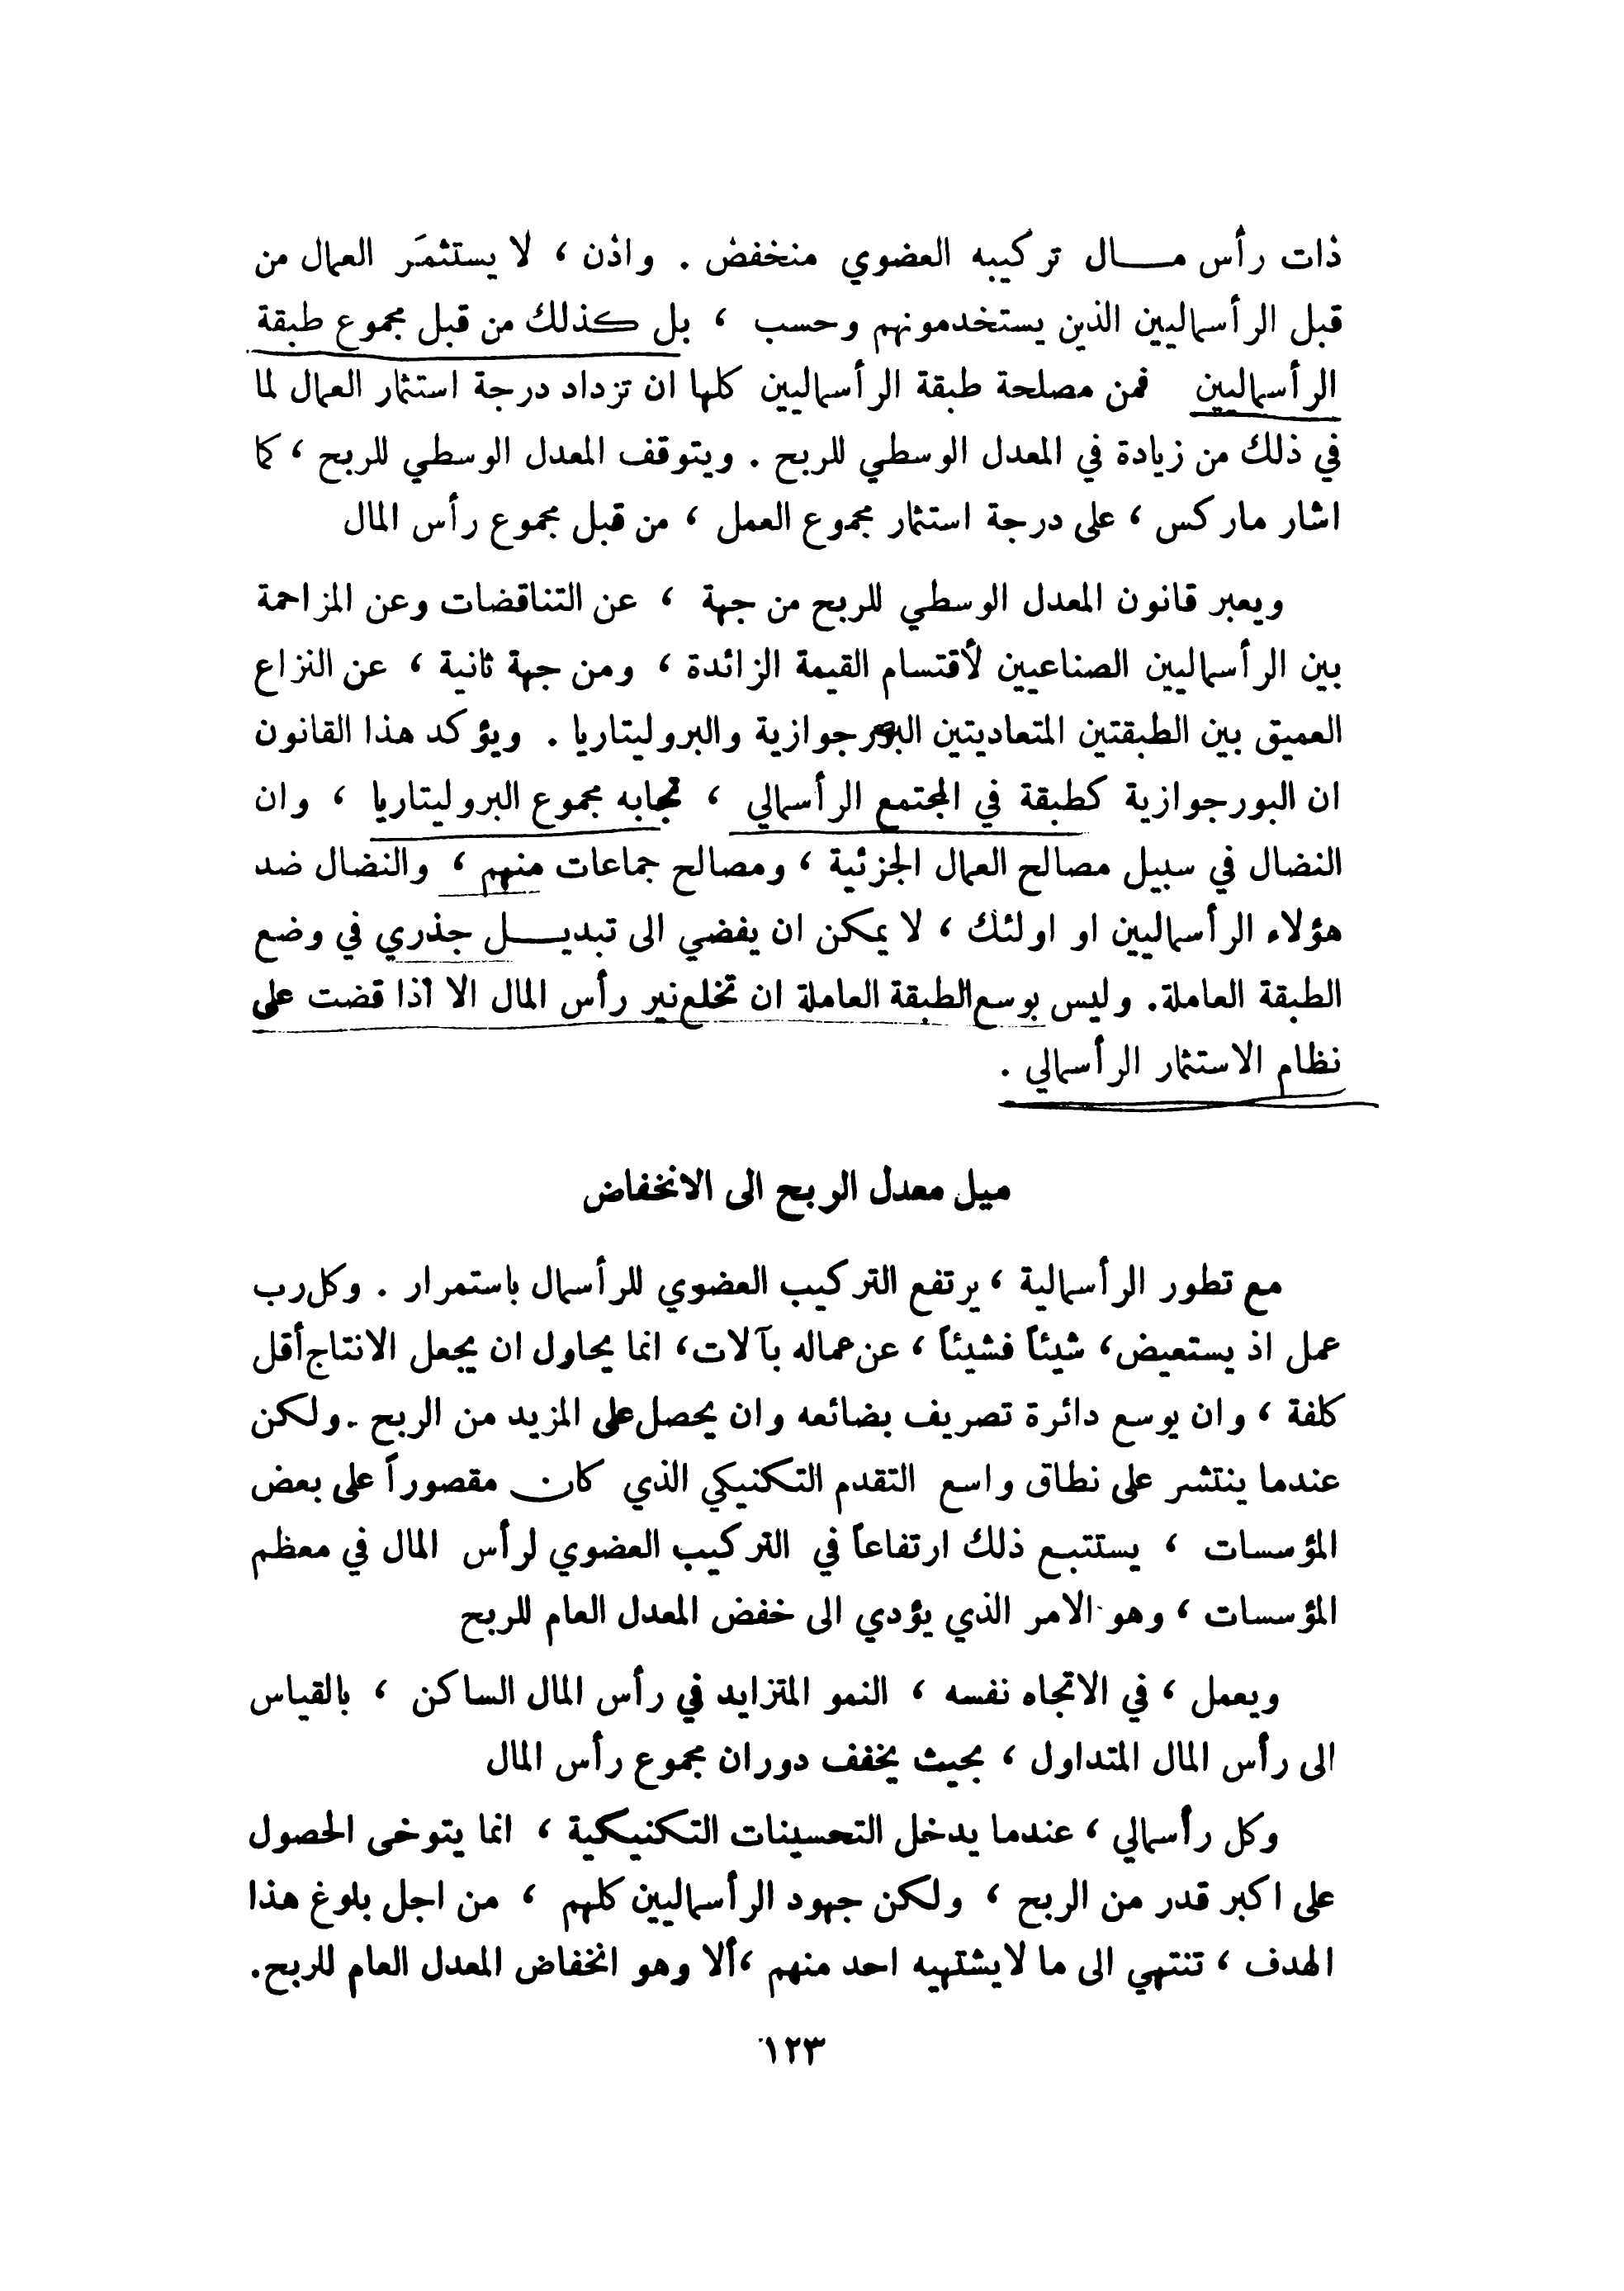 ذات رأس مـــال تركيبه العضوي منخفض . واذن ، لا يستثمَر العمال من
قبل الرأسماليين الذين يستخدمونهم وحسب ، بل كذلك من قبل مجموع طبقة
الرأسماليين فمن مصلحة طبقة الرأسماليين كلها ان تزداد درجة استثمار العمال لما
في ذلك من زيادة في المعدل الوسطي للربح . ويتوقف المعدل الوسطي للربح ، كما
اشار ماركس ، على درجة استثمار مجموع العمل ، من قبل مجموع رأس المال
ويعبر قانون المعدل الوسطي للربح من جهة ، عن التناقضات وعن المزاحمة
بين الرأسماليين الصناعيين لأقتسام القيمة الزائدة ، ومن جهة ثانية ، عن النزاع
العميق بين الطبقتين المتعاديتين البورجوازية والبروليتاريا . ويؤكد هذا القانون
ان البورجوازية كطبقة في المجتمع الرأسمالي ، تجابه مجموع البروليتاريا ، وان
النضال في سبيل مصالح العمال الجزئية ، ومصالح جماعات منهم ، والنضال ضد
هؤلاء الرأسماليين او اولئك ، لا يمكن ان يفضي الى تبديـــل جذري في وضع
الطبقة العاملة. وليس بوسع الطبقة العاملة ان تخلع نير رأس المال الا اذا قضت على
نظام الاستثمار الرأسمالي .
ميل معدل الربح الى الانخفاض
مع تطور الرأسمالية ، يرتفع التركيب العضوي للرأسمال باستمرار . وكل رب
عمل اذ يستعيض، شيئاً فشيئاً ، عن عماله بآلات، انما يحاول ان يجعل الانتاج أقل
كلفة ، وان يوسع دائرة تصريف بضائعه وان يحصل على المزيد من الربح . ولكن
عندما ينتشر على نطاق واسع التقدم التكنيكي الذي كان مقصوراً على بعض
المؤسسات ، يستتبع ذلك ارتفاعاً في التركيب العضوي لرأس المال في معظم
المؤسسات ، وهو الامر الذي يؤدي الى خفض المعدل العام للربح
ويعمل ، في الاتجاه نفسه ، النمو المتزايد في رأس المال الساكن ، بالقياس
الى رأس المال المتداول ، بحيث يخفف دوران مجموع رأس المال
وكل رأسمالي ، عندما يدخل التحسينات التكنيكية ، انما يتوخى الحصول
على اكبر قدر من الربح ، ولكن جهود الرأسماليين كلهم ، من اجل بلوغ هذا
الهدف ، تنتهي الى ما لايشتهيه احد منهم ،ألا وهو انخفاض المعدل العام للربح.
١٢٣